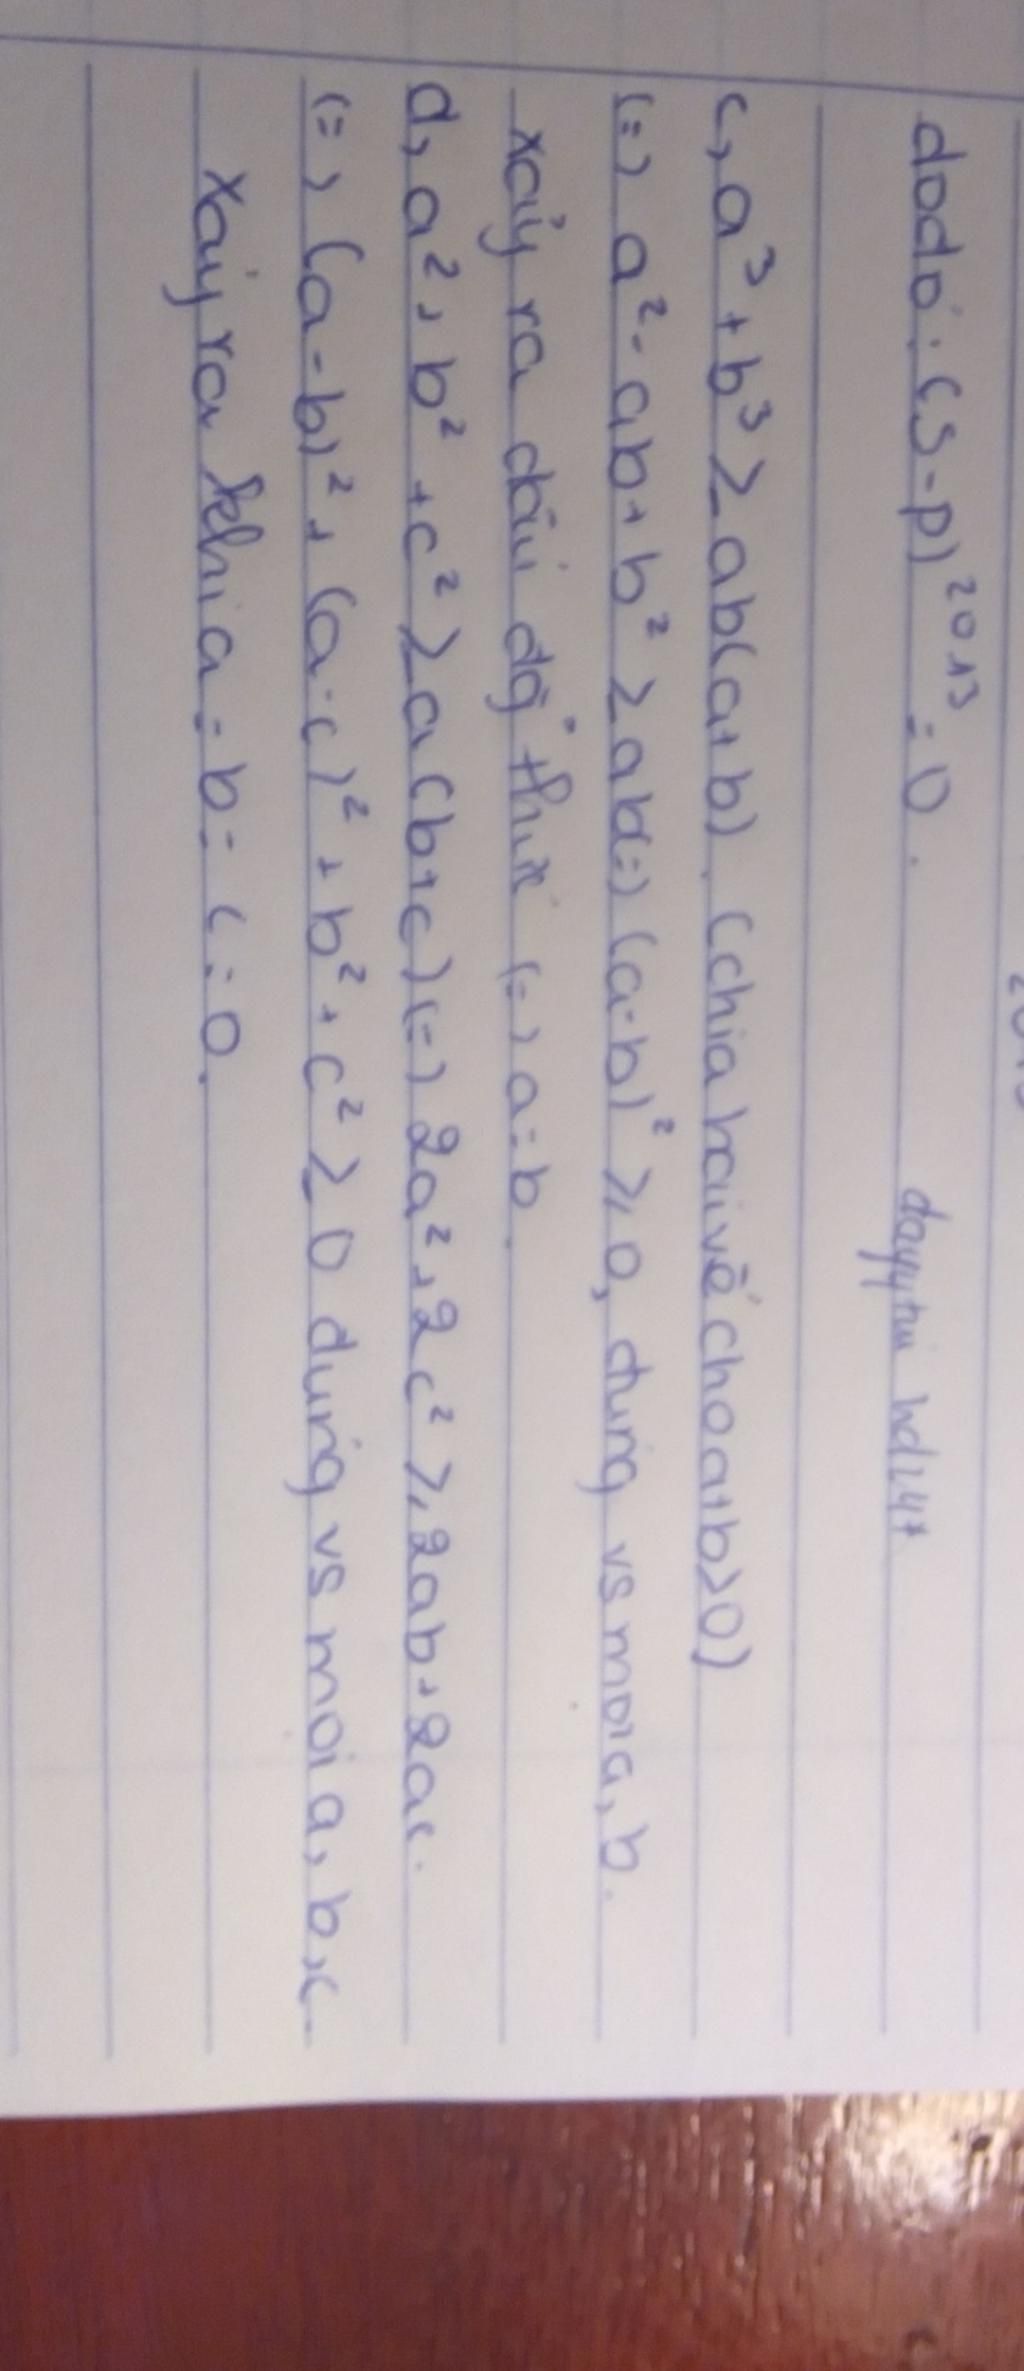 do đó: (S-P)²⁰¹³ = 0.
c, a³ + b³ ≥ ab(a+b). (chia hai vế cho a+b>0)
(=) a² - ab + b² ≥ ab (=) (a-b)² ≥ 0, đúng vs mọi a, b.
xảy ra dấu đẳng thức (=) a = b.
d, a² + b² + c² ≥ a(b+c) (=) 2a² + 2c² ≥ 2ab + 2ac.
(=) (a-b)² + (a-c)² + b² + c² ≥ 0 đúng vs mọi a, b, c
xảy ra khi a = b = c = 0.